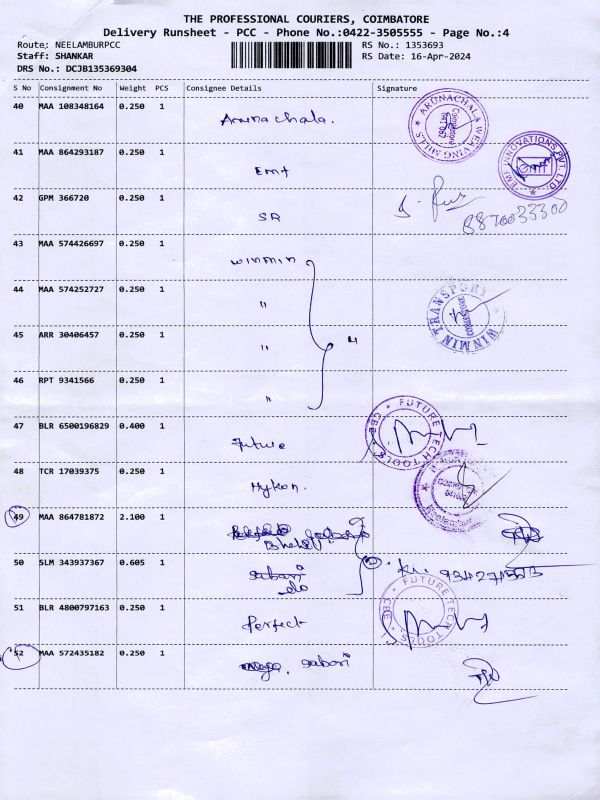 THE PROFESSIONAL COURIERS, COIMBATORE
Delivery Runsheet - PCC - Phone No.:0422-3505555 - Page No.:4
Route: NEELAMBURPCC RS No.: 1353693
Staff: SHANKAR RS Date: 16-Apr-2024
DRS No.: DCJB135369304
S No Consignment No Weight PCS Consignee Details Signature
40 MAA 108348164 0.250 1
Arunachala.
ARUNACHALA WEAVING MILLS
41 MAA 864293187 0.250 1
Emf
EMF INNOVATIONS PVT. LTD.
42 GPM 366720 0.250 1
SR
43 MAA 574426697 0.250 1
winmin
44 MAA 574252727 0.250 1
"
WIN MIN TRANSPORT
45 ARR 30406457 0.250 1
" 4
46 RPT 9341566 0.250 1
"
47 BLR 6500196829 0.400 1
Future
FUTURE TECH TOOLS CBE
48 TCR 17039375 0.250 1
Mykon.
49 MAA 864781872 2.100 1
50 SLM 343937367 0.605 1
sabari
do
51 BLR 4800797163 0.250 1
Perfect
FUTURE TECH TOOLS CBE
52 MAA 572435182 0.250 1
sabari